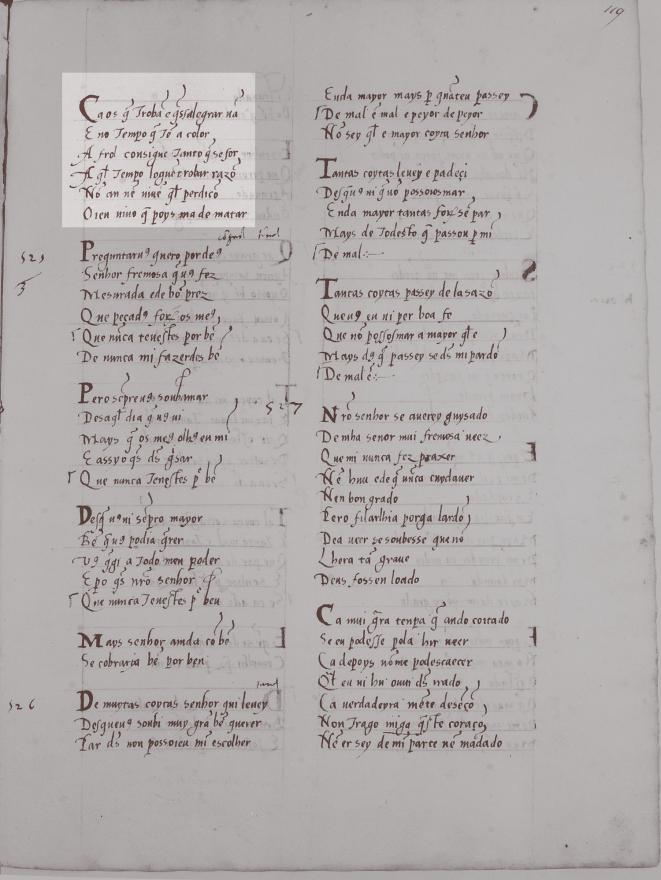 119
Ca os q̃ Troba e q̃ssalegrar uã
E no Tempo q̃ Tẽ a color
A frol consigue Tanto q̃ se for
A ql̃ Tempo loguẽ trobar razõ
Nõ an nẽ uiue ql̃ perdiçõ
Oien uiuo q̃ poys ma de matar
525
Preguntaru9 quero por de9
Senhor fremosa q̃ u9 fez
Mesurada e de bõ prez
Que pecad9 forõ os me9
Que nunca teuestes por bẽ
De nunca mi fazerdes bẽ
Pero sẽpreu9 soub amar
Des aql̃ dia q̃ u9 ui
Mays q̃ os me9 olh9 eu mi
E assy o q̃s ds̃ guisar
Que nunca Teuestes p̃ bẽ
Desq̃ u9 ui sẽpro mayor
Bẽ q̃ u9 podia q̃rer
U9 q̃gi a Todo meu poder
E po q̃s nr̃o senhor
Que nunca Teuestes p̃ beu
Mays senhor ainda cõ bẽ
Se cobraria bẽ por ben
526
De muytas coytas senhor qui leuey
Desque u9 soubi muy grã bẽ querer
Par ds̃ non posso ieu mi escolher
Enda mayor mays p̃ quãteu passey
De mal ẽ mal e peyor de peyor
Nõ sey ql̃ e mayor coyta senhor
Tantas coytas leuey e padeçi
Desq̃ u9 ui q̃ nõ posso iosmar
Enda mayor tantas forõ sẽ par
Mays de Todesto q̃ passou p̃ mi
De mal
Tantas coytas passey de la sazõ
Que u9 eu ui per boa fe
Que nõ posso osmar a mayor ql̃ e
Mays d9 q̃ passey se ds̃ mi pardõ
De mal ẽ
527
Nr̃o senhor se auerey guysado
De mha senor mui fremosa ueer
Que mi nunca fez praxer
Nẽ hũu e de q̃ nũca cuyd auer
Nen bon grado
Pero filarlhia por galardõ
Dea ueer se soubesse que nõ
Lhera tã graue
Deus fossen loado
Ca mui gr̃a tenp a q̃ ando coitado
Se eu podesse pola hir ueer
Ca depoys nõ me pod escaecer
Ql̃ eu ui hu ouui ds̃ irado
Ca uerdadeyra mẽte deseço
Non Trago migo q̃ste coraço
Nẽ er sey de mi parte nẽ mãdado